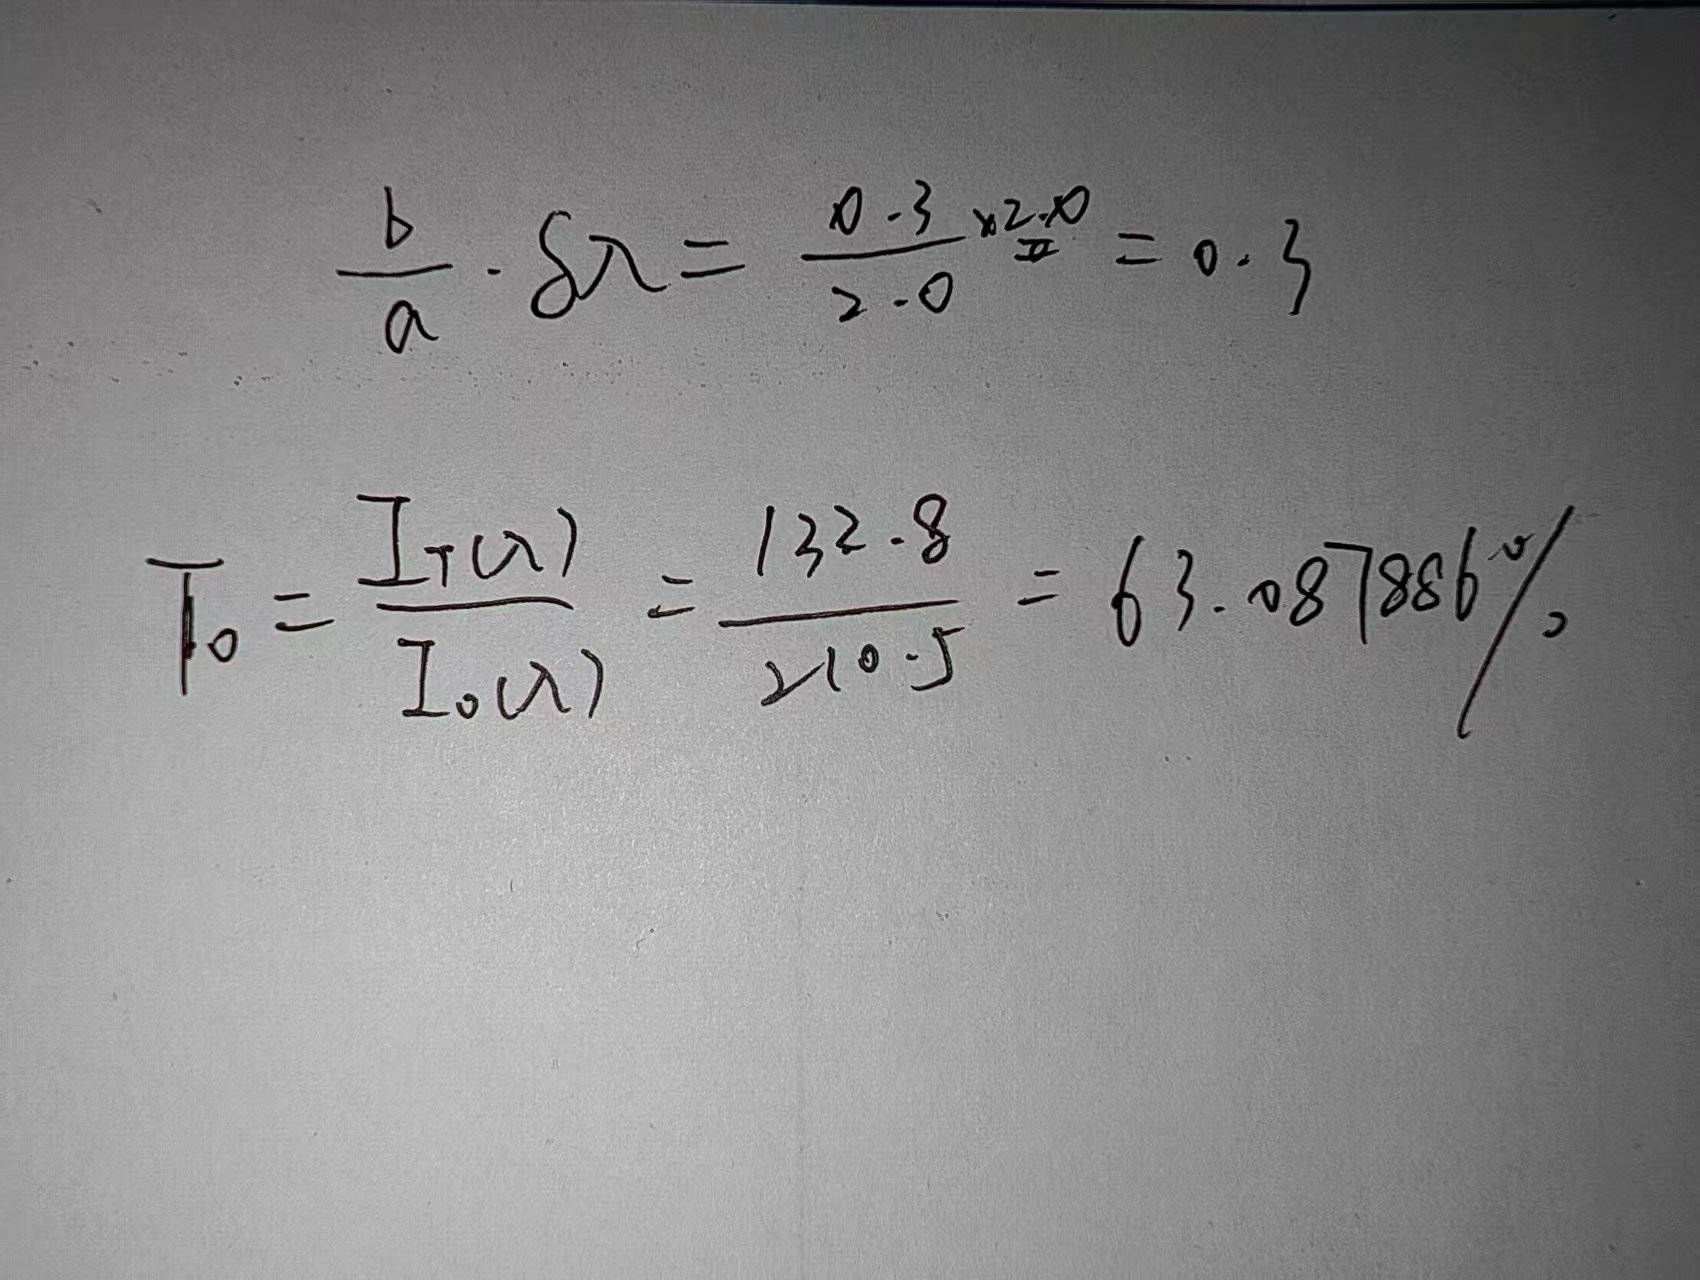 b/a · δλ = 0.3/2.0 × 2.0 = 0.3
T₀ = I_T(λ)/I₀(λ) = 132.8/210.5 = 63.087886%